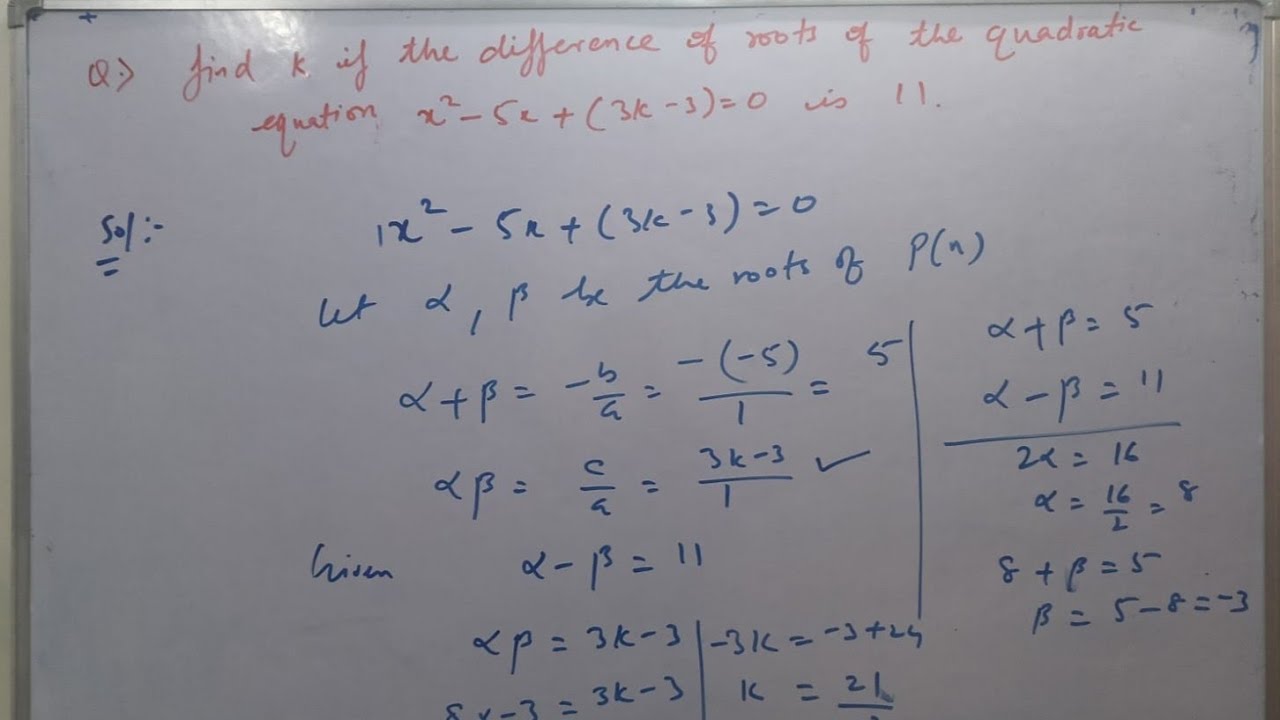 Q:> find k if the difference of roots of the quadratic
equation x² - 5x + (3k - 3) = 0 is 11.
Sol:-
1x² - 5x + (3k - 3) = 0
Let α, β be the roots of P(x)
α + β = -b/a = -(-5)/1 = 5
αβ = c/a = 3k-3/1 ✓
Given α - β = 11
αβ = 3k - 3
8x-3 = 3k-3
α + β = 5
α - β = 11
2α = 16
α = 16/2 = 8
8 + β = 5
β = 5 - 8 = -3
-3k = -3+24
k = 21